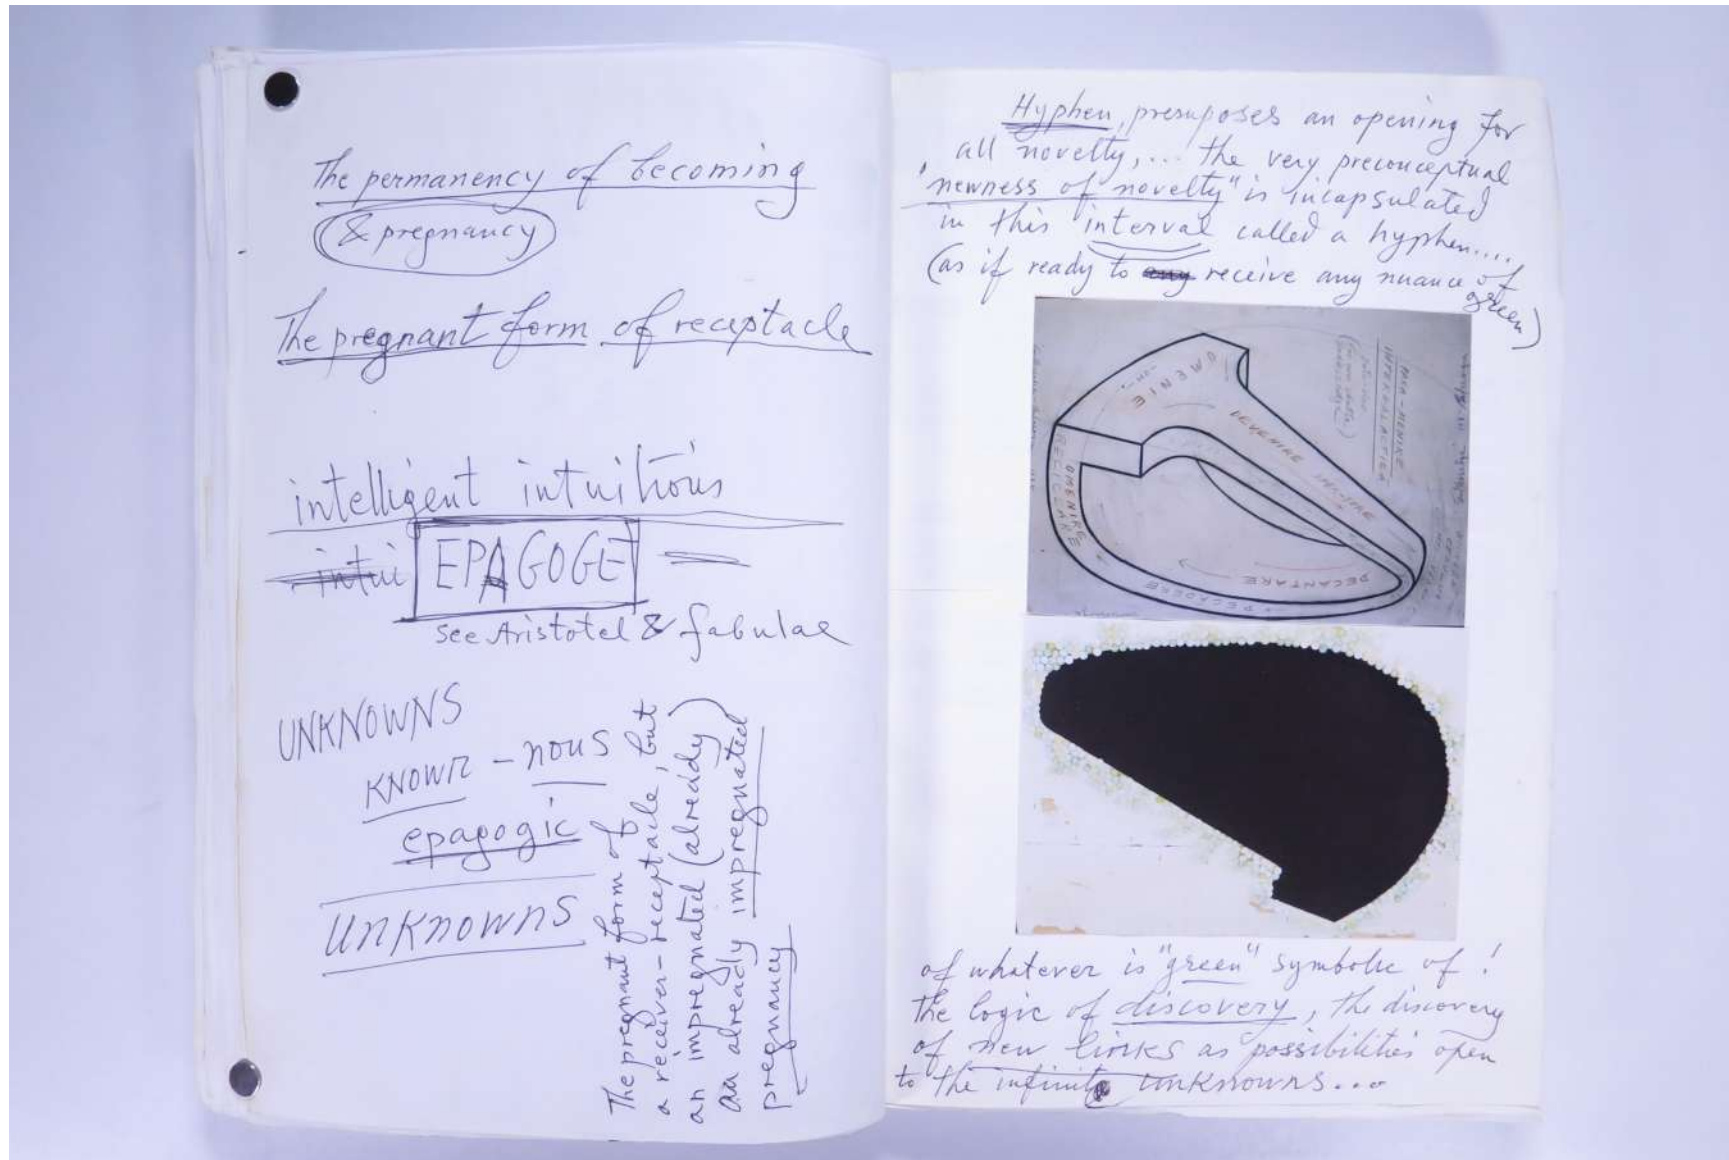 The permanency of becoming
& pregnancy
The pregnant form of receptacle
intelligent intuitions
intui EPAGOGE
see Aristotel & fabulae
UNKNOWNS
KNOWN – nous
epagogic
UNKNOWNS
The pregnant form of
a receiver – receptacle, but
an impregnated (already)
an already impregnated
pregnancy
Hyphen, presuposes an opening for
all novelty,... the very preconceptual
"newness of novelty" is incapsulated
in this interval called a hyphen....
(as if ready to any receive any nuance of
green)
OMENIE
DEVENIRE
OMENIRE
RECICLARE
DECANTARE
of whatever is "green" symbolic of !
the logic of discovery, the discovery
of new links as possibilities open
to the infinite unknowns...